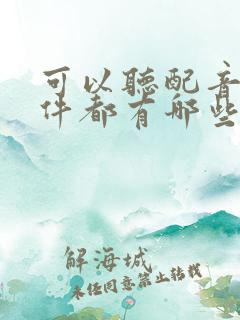 可以聽配音
件都有哪些
解海城
未经同意禁止转载